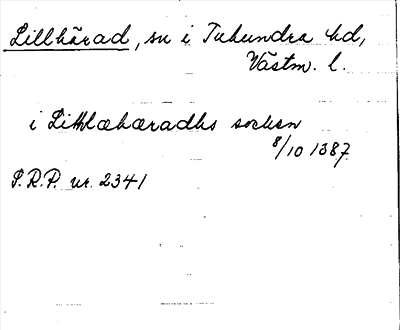 Lillhärad, sn i Tuhundra hd,
Västm. l.
i Lithlæhæradhs socken
8/10 1387
S.R.P. nr. 2341